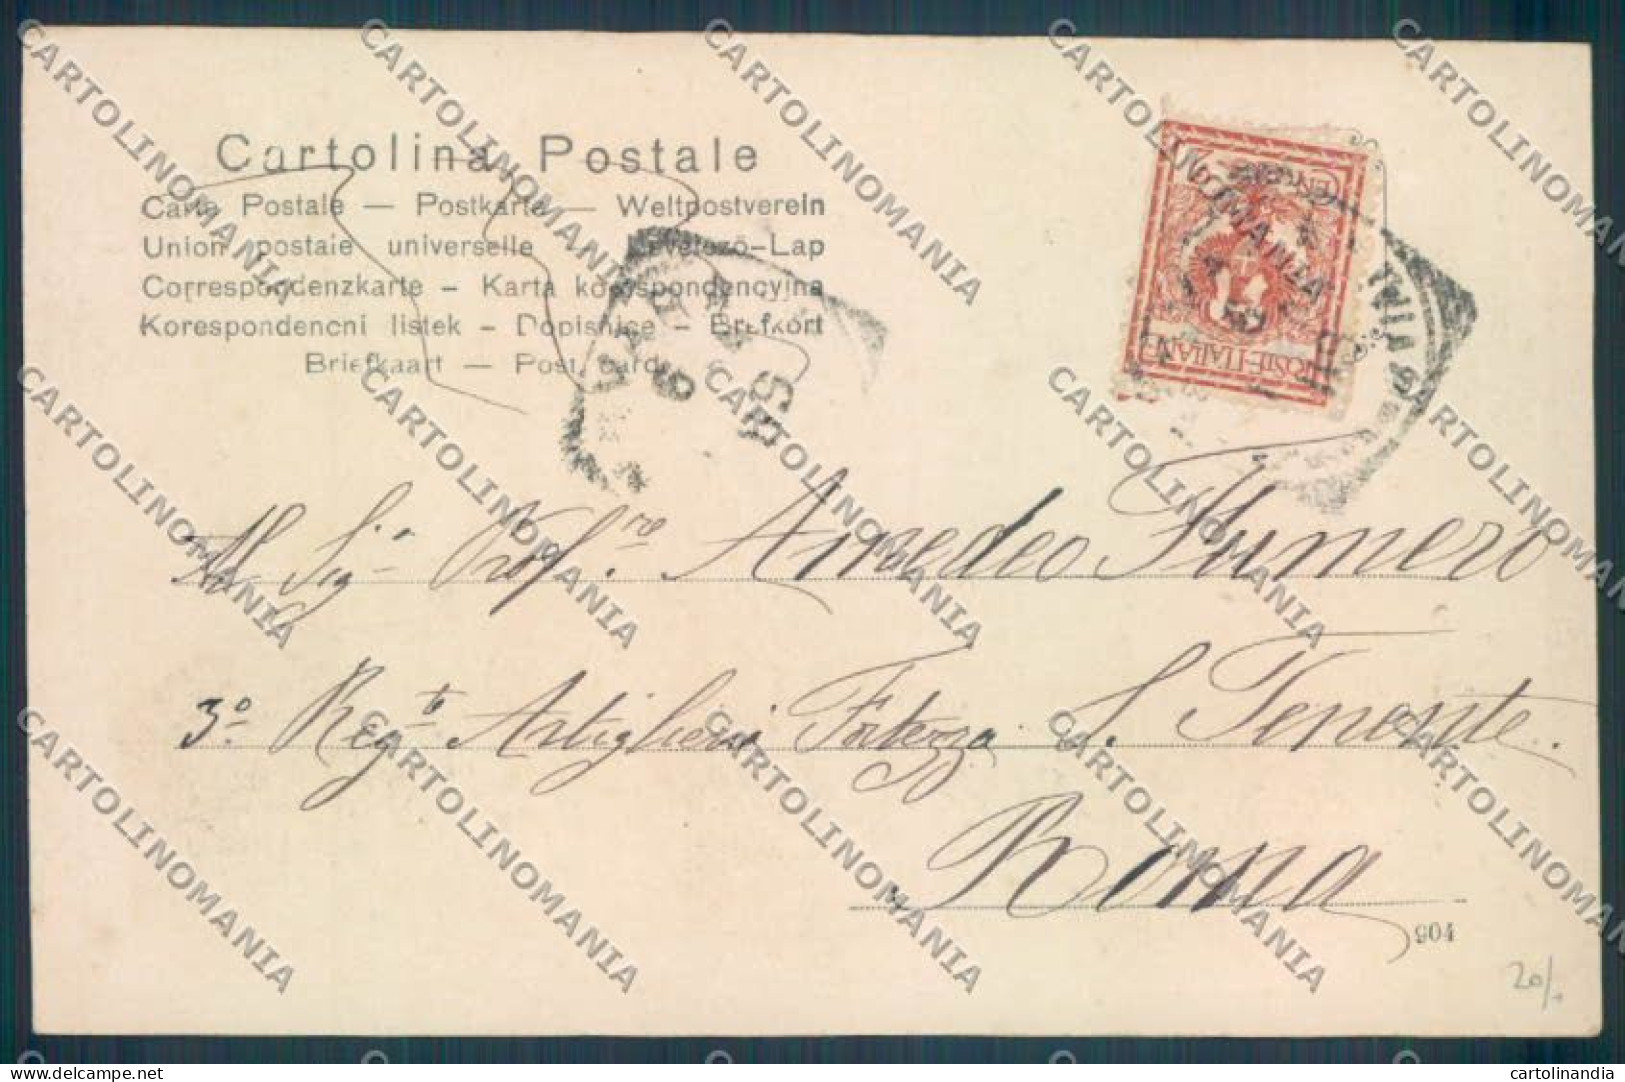 Cartolina Postale
Carte Postale — Postkarte — Weltpostverein
Union postale universelle Levelező-Lap
Correspondenzkarte – Karta korespondencyjna
Korespondencni listek – Dopisnice – Brefkort
Briefkaart — Post card
Al Sig. Prof.re Amedeo Fumero
3º Regg.to Artiglieria Fortezza S. Tenente.
Roma
904
20/.
POSTE-ITALIANE
CARTOLINOMANIA
cartolinandia